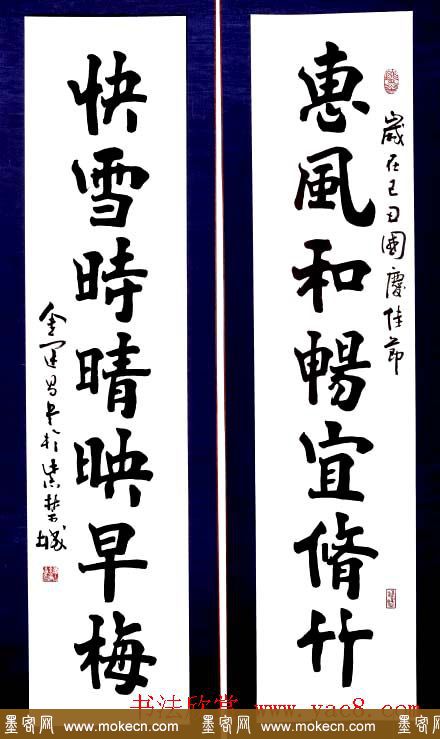 惠風和暢宜脩竹
歲在己丑國慶佳節
快雪時晴映早梅
金運昌書於紫禁城
书法欣赏 www.yac8.com
墨客网 www.mokecn.com 墨客网 www.mokecn.com 墨客网